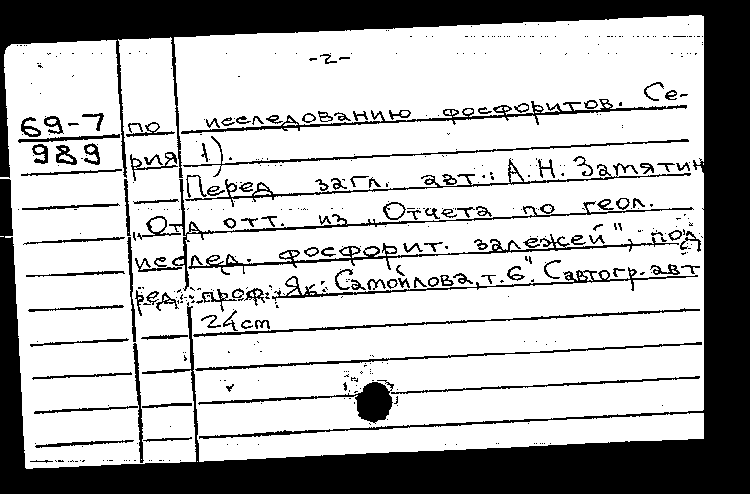 -2-
69-7 по исследованию фосфоритов. Се-
989 рия 1).
Перед загл. авт.: А.Н. Замятин
„Отд. отт. из „Отчета по геол.
исслед. фосфорит. залежей", под
ред. проф. Як. Самойлова, т. 6". С автогр. авт
24 cm